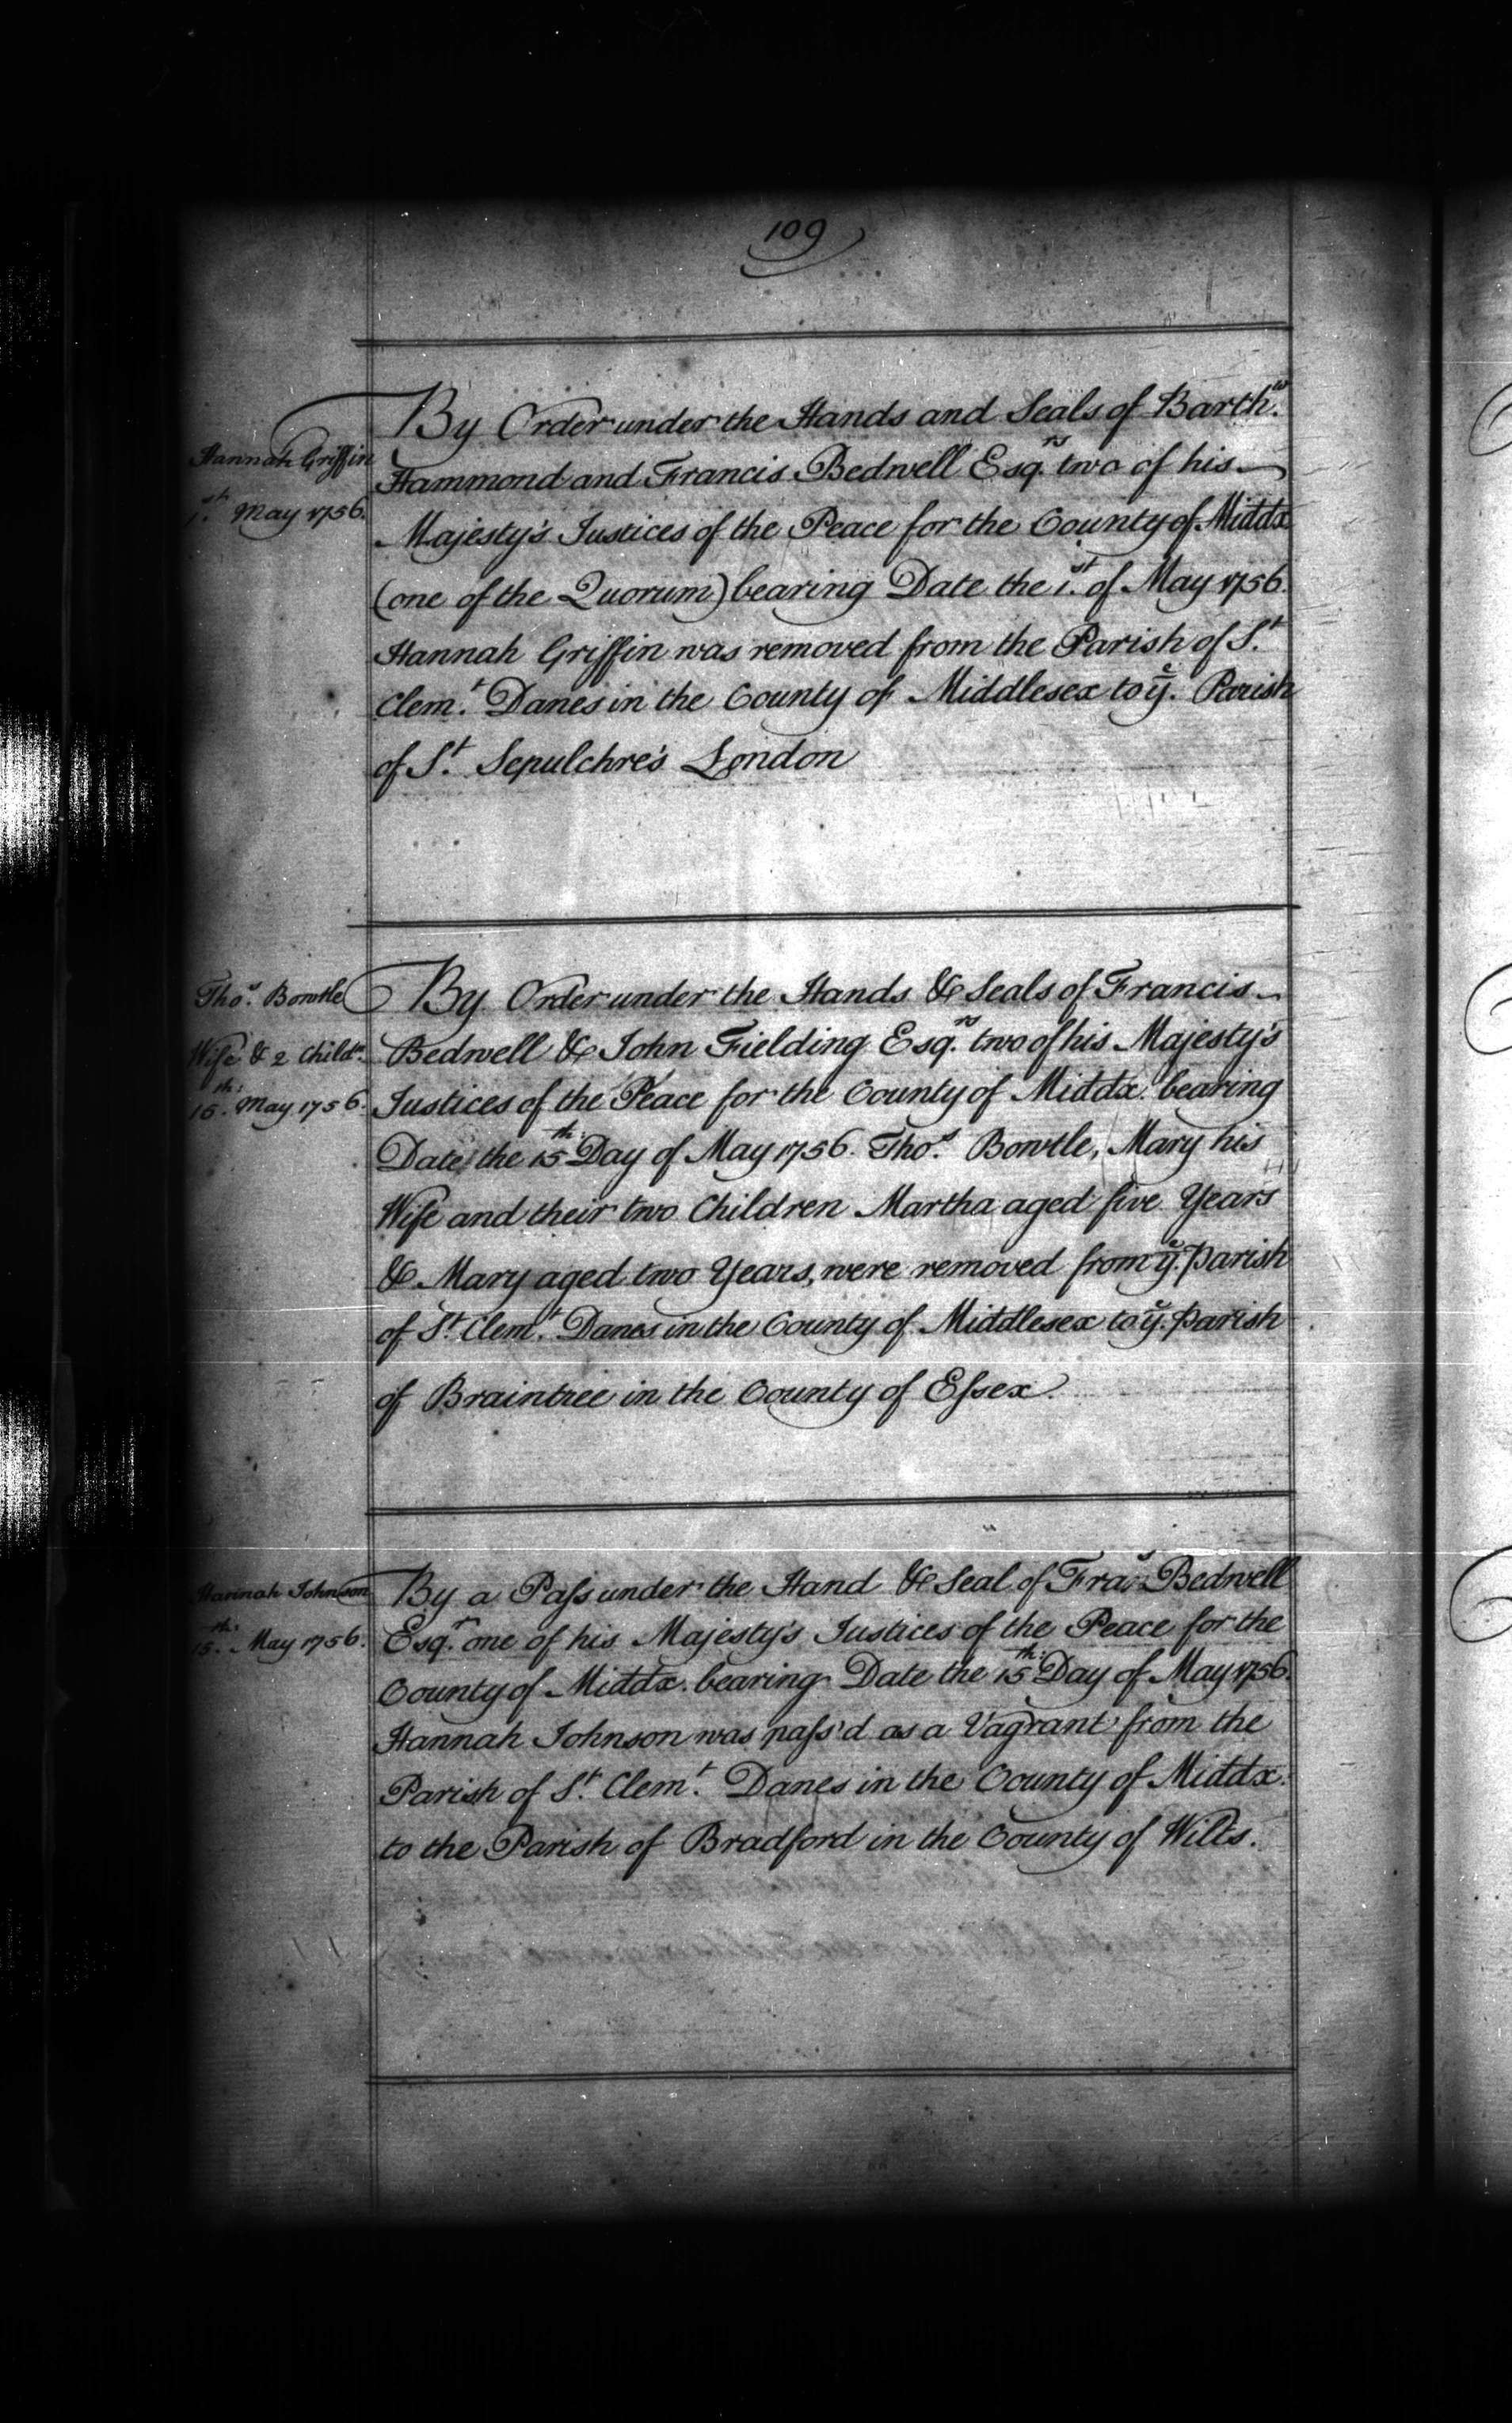 109
Hannah Griffin
1st. May 1756.
By Order under the Hands and Seals of Barthw.
Hammond and Francis Bedwell Esqrs. two of his
Majesty's Justices of the Peace for the County of Middx
(one of the Quorum) bearing Date the 1st. of May 1756.
Hannah Griffin was removed from the Parish of St.
Clemt. Danes in the County of Middlesex to ye. Parish
of St. Sepulchre's London
Thos. Bowtle
Wife & 2 Childn.
15th. May 1756.
By Order under the Hands & Seals of Francis
Bedwell & John Fielding Esqrs. two of his Majesty's
Justices of the Peace for the County of Middx. bearing
Date the 15th. Day of May 1756. Thos. Bowtle, Mary his
Wife and their two Children Martha aged five Years
& Mary aged two Years, were removed from ye. Parish
of St. Clemt. Danes in the County of Middlesex to ye. Parish
of Braintree in the County of Eſsex.
Hannah Johnson
15th. May 1756.
By a Paſs under the Hand & Seal of Fras. Bedwell
Esqr. one of his Majesty's Justices of the Peace for the
County of Middx. bearing Date the 15th. Day of May 1756.
Hannah Johnson was paſs'd as a Vagrant from the
Parish of St. Clemt. Danes in the County of Middx.
to the Parish of Bradford in the County of Wilts.